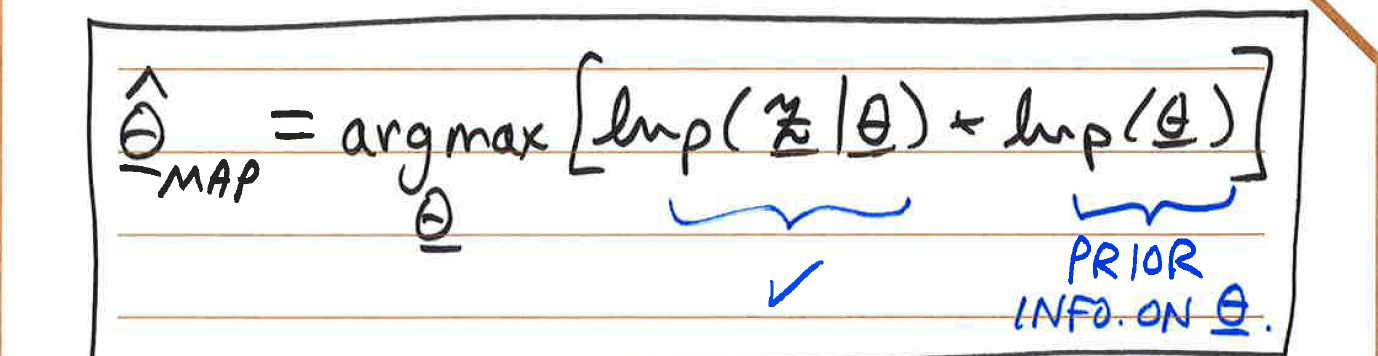 θ̂_MAP = argmax_θ [ln p(z|θ) + ln p(θ)]
✓
PRIOR
INFO. ON θ.